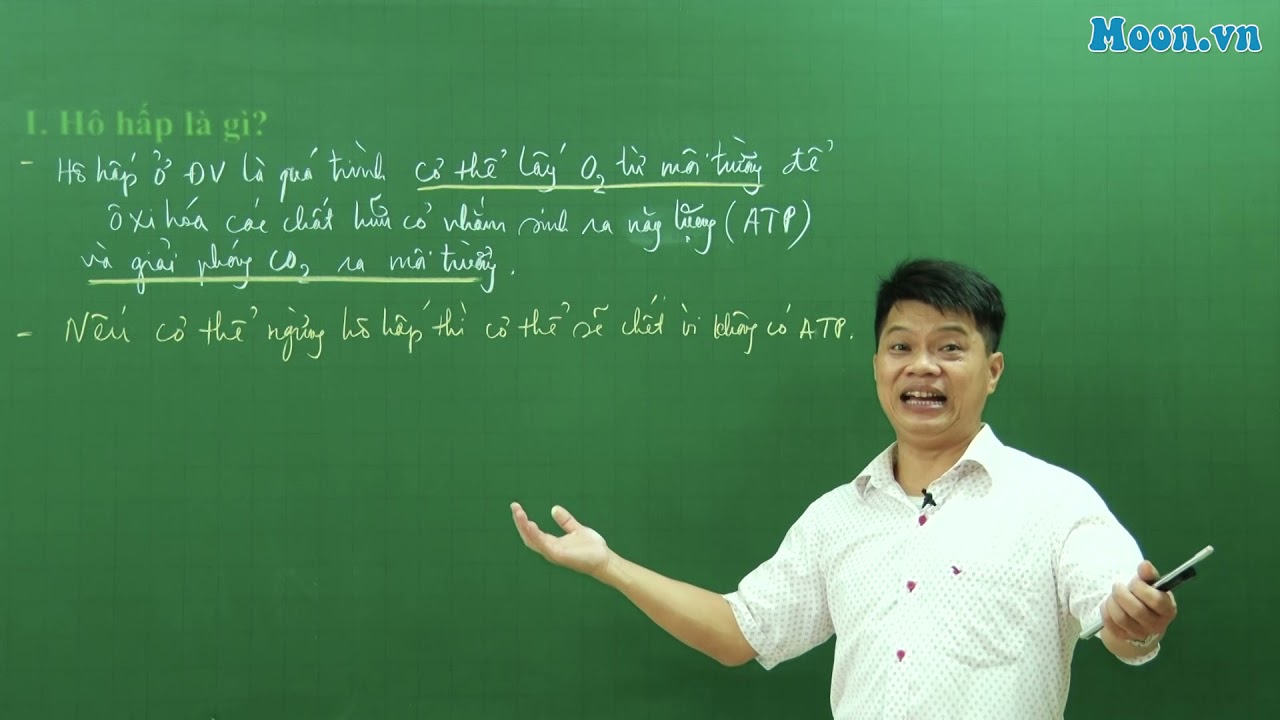 Moon.vn
I. Hô hấp là gì?
- Hô hấp ở ĐV là quá trình cơ thể lấy O₂ từ môi trường để
ôxi hóa các chất hữu cơ nhằm sinh ra năng lượng (ATP)
và giải phóng CO₂ ra môi trường.
- Nếu cơ thể ngừng hô hấp thì cơ thể sẽ chết vì không có ATP.